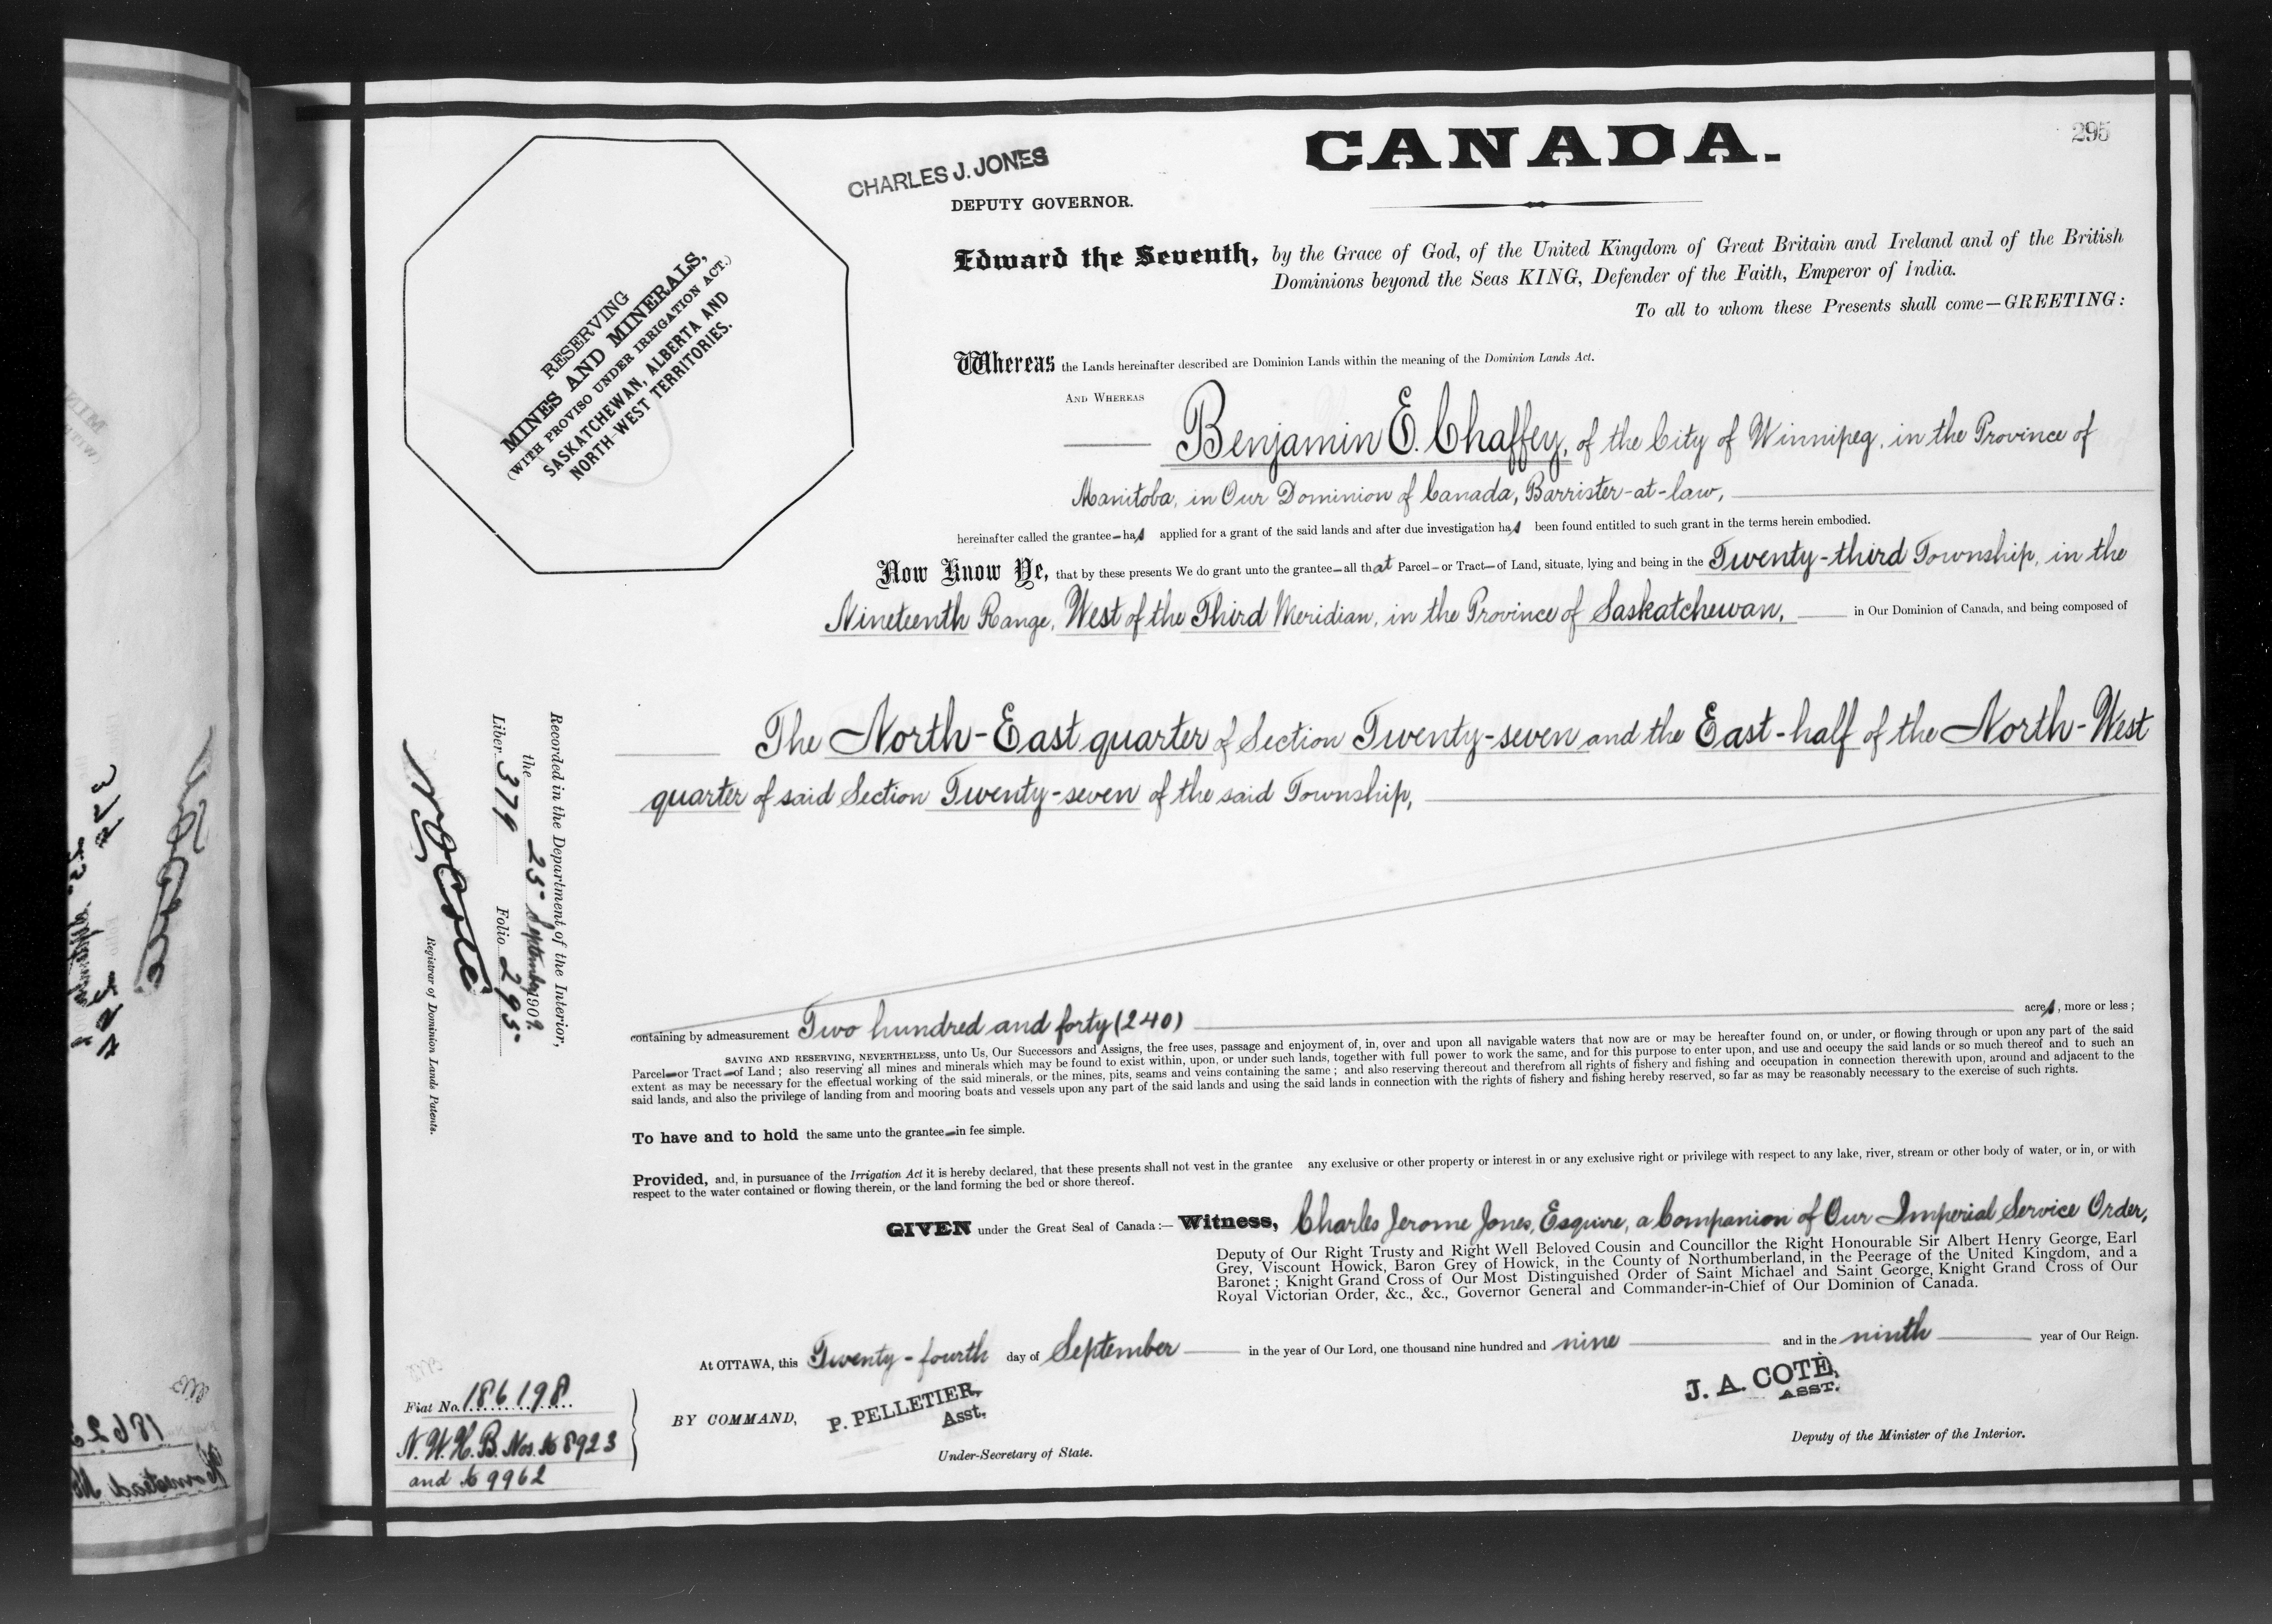 295
CANADA.
CHARLES J. JONES
DEPUTY GOVERNOR.
RESERVING
MINES AND MINERALS,
(WITH PROVISO UNDER IRRIGATION ACT.)
SASKATCHEWAN, ALBERTA AND
NORTH-WEST TERRITORIES.
Edward the Seventh, by the Grace of God, of the United Kingdom of Great Britain and Ireland and of the British
Dominions beyond the Seas KING, Defender of the Faith, Emperor of India.
To all to whom these Presents shall come—GREETING:
Whereas the Lands hereinafter described are Dominion Lands within the meaning of the Dominion Lands Act.
AND WHEREAS
Benjamin E. Chaffey, of the City of Winnipeg, in the Province of
Manitoba, in Our Dominion of Canada, Barrister-at-law,
hereinafter called the grantee—has applied for a grant of the said lands and after due investigation has been found entitled to such grant in the terms herein embodied.
Now Know Ye, that by these presents We do grant unto the grantee—all that Parcel—or Tract—of Land, situate, lying and being in the Twenty-third Township, in the
Nineteenth Range, West of the Third Meridian, in the Province of Saskatchewan, in Our Dominion of Canada, and being composed of
The North-East quarter of Section Twenty-seven and the East-half of the North-West
quarter of said Section Twenty-seven of the said Township,
containing by admeasurement Two hundred and forty (240) acres, more or less;
SAVING AND RESERVING, NEVERTHELESS, unto Us, Our Successors and Assigns, the free uses, passage and enjoyment of, in, over and upon all navigable waters that now are or may be hereafter found on, or under, or flowing through or upon any part of the said
Parcel—or Tract—of Land; also reserving all mines and minerals which may be found to exist within, upon, or under such lands, together with full power to work the same, and for this purpose to enter upon, and use and occupy the said lands or so much thereof and to such an
extent as may be necessary for the effectual working of the said minerals, or the mines, pits, seams and veins containing the same; and also reserving thereout and therefrom all rights of fishery and fishing and occupation in connection therewith upon, around and adjacent to the
said lands, and also the privilege of landing from and mooring boats and vessels upon any part of the said lands and using the said lands in connection with the rights of fishery and fishing hereby reserved, so far as may be reasonably necessary to the exercise of such rights.
To have and to hold the same unto the grantee—in fee simple.
Provided, and, in pursuance of the Irrigation Act it is hereby declared, that these presents shall not vest in the grantee any exclusive or other property or interest in or any exclusive right or privilege with respect to any lake, river, stream or other body of water, or in, or with
respect to the water contained or flowing therein, or the land forming the bed or shore thereof.
GIVEN under the Great Seal of Canada:— Witness, Charles Jerome Jones, Esquire, a Companion of Our Imperial Service Order,
Deputy of Our Right Trusty and Right Well Beloved Cousin and Councillor the Right Honourable Sir Albert Henry George, Earl
Grey, Viscount Howick, Baron Grey of Howick, in the County of Northumberland, in the Peerage of the United Kingdom, and a
Baronet; Knight Grand Cross of Our Most Distinguished Order of Saint Michael and Saint George, Knight Grand Cross of Our
Royal Victorian Order, &c., &c., Governor General and Commander-in-Chief of Our Dominion of Canada.
At OTTAWA, this Twenty-fourth day of September in the year of Our Lord, one thousand nine hundred and nine and in the ninth year of Our Reign.
BY COMMAND,
P. PELLETIER,
Asst.
Under-Secretary of State.
J. A. COTÈ,
ASST.
Deputy of the Minister of the Interior.
Recorded in the Department of the Interior,
the 25 September 1909.
Liber 379 Folio 295.
N O Coté
Registrar of Dominion Lands Patents.
Fiat No. 186198
N.W.H.B. Nos. 168923
and 169962